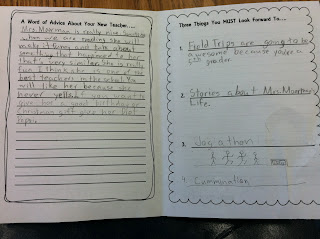 A Word of Advice About Your New Teacher....
Mrs. Moorman is really nice. Sometimes
when are reading she will
make it funny and talk about
something that happened to her
that's very similar. She is really
fun. I think she is one of the
best teachers in the school. You
will like her because she
never yells. If you want to
give her a good birthday or
Christmas gift give her flat
tops.
Three Things You MUST Look Forward To....
1. Field Trips are going to be
awesome because you're a
5th grader.
2. Stories about Mrs. Moorman's
Life.
3. Jog a thon
4. Communation